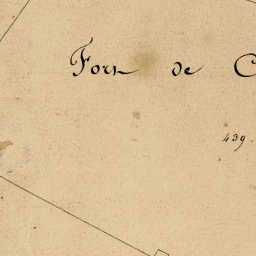 Fort de C
439.